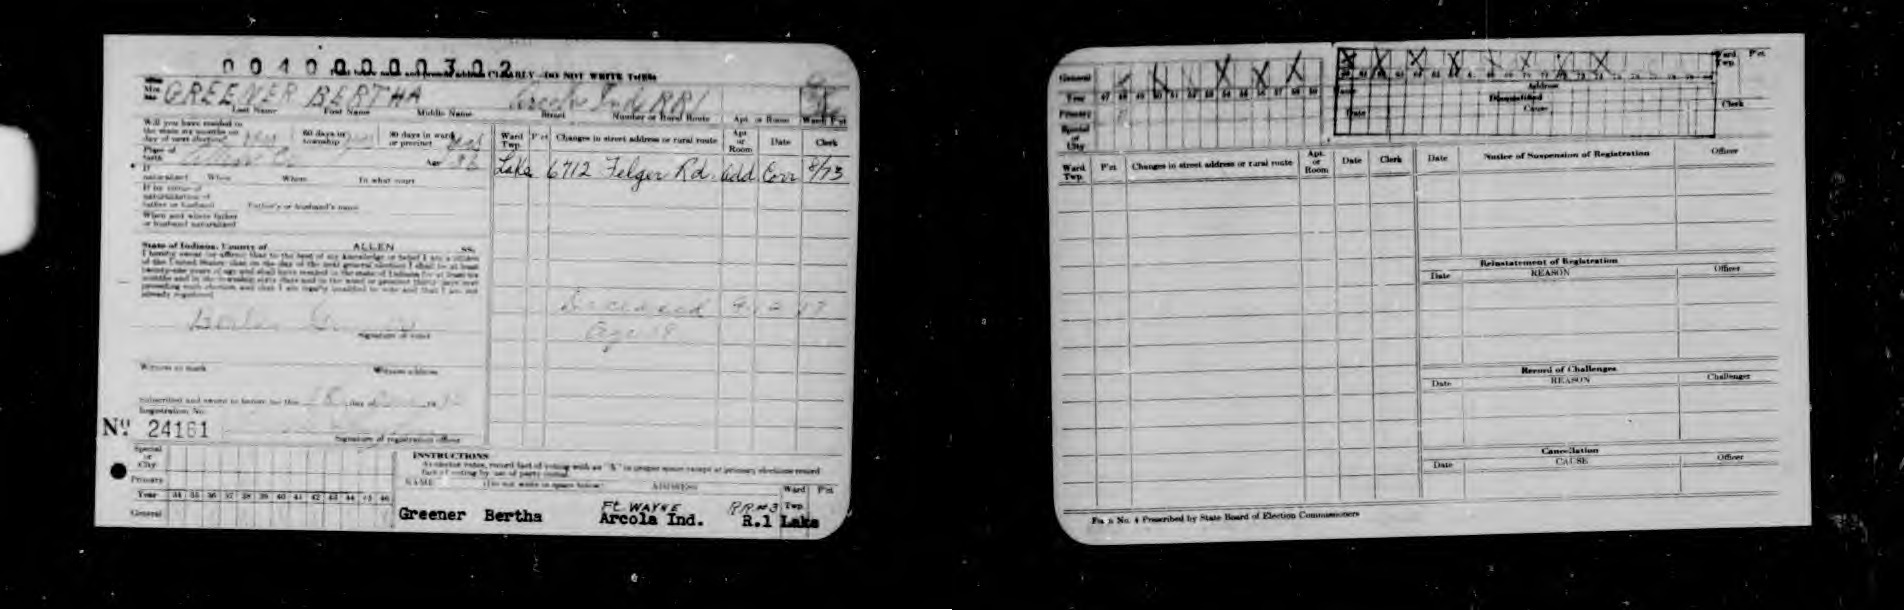 00400000302
Print below name and present address CLEARLY—DO NOT WRITE
GREENER BERTHA Arcola Ind RR1
Last Name First Name Middle Name Street Number or Rural Route Apt. or Room Ward Pct
Will you have resided in
the state six months on 60 days in 30 days in ward
day of next election? yes township yes or precinct yes
Place of
birth Allen Co. Age
If
naturalized When Where In what court
If by virtue of
naturalization of
father or husband Father's or husband's name
When and where father
or husband naturalized
State of Indiana, County of ALLEN SS.
I hereby swear (or affirm) that to the best of my knowledge or belief I am a citizen
of the United States; that on the day of the next general election I shall be at least
twenty-one years of age and shall have resided in the state of Indiana for at least six
months and in the township sixty days and in the ward or precinct thirty days next
preceding such election and that I am legally qualified to vote and that I am not
already registered.
Signature of voter
Witness to mark Witness address
Subscribed and sworn to before me this day of
Registration No.
No. 24161
Signature of registration officer
Ward Twp. Pct Changes in street address or rural route Apt. or Room Date Clerk
Lake 6712 Felger Rd. Add Corr 8/73
Deceased
Age
Special
or
City
Primary
Year 34 35 36 37 38 39 40 41 42 43 44 45 46
General
INSTRUCTIONS
As elector votes, record fact of voting with an "X" in proper space except at primary elections record
fact of voting by use of party initial.
NAME (Do not write in space below) ADDRESS Ward Pct
Ft. WAYNE RR#3 Twp
Greener Bertha Arcola Ind. R.1 Lake
General
Year 47 48 49 50 51 52 53 54 55 56 57 58 59
Primary
Special
or
City
Ward
Twp. Pct
Address
Disqualified
Date Cause Clerk
Ward
Twp. Pct Changes in street address or rural route Apt. or Room Date Clerk
Date Notice of Suspension of Registration Officer
Reinstatement of Registration
Date REASON Officer
Record of Challenges
Date REASON Challenger
Cancellation
Date CAUSE Officer
No. 4 Prescribed by State Board of Election Commissioners